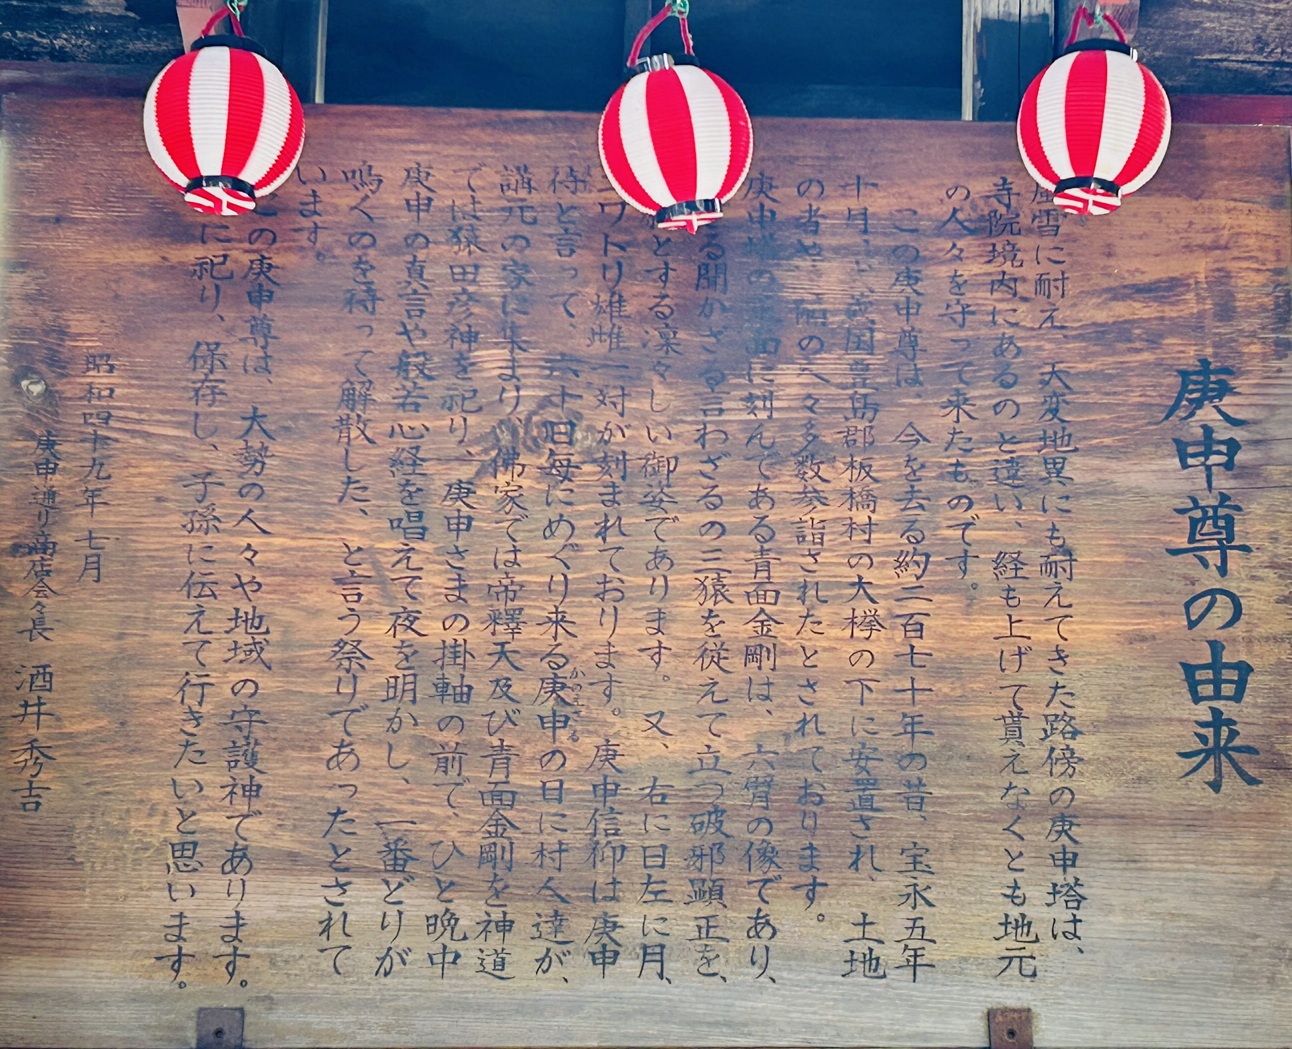 庚申尊の由来
風雪に耐え、天変地異にも耐えてきた路傍の庚申塔は、
寺院境内にあるのと違い、経も上げて貰えなくとも地元
の人々を守って来たものです。
この庚申尊は、今を去る約二百七十年の昔、宝永五年
十月、武蔵国豊島郡板橋村の大欅の下に安置され、土地
の者や、 の人々多数参詣されたとされております。
庚申塔の正面に刻んである青面金剛は、六臂の像であり、
る聞かざる言わざるの三猿を従えて立つ破邪顕正を、
とする凜々しい御姿であります。又、右に日左に月、
ニワトリ雄雌一対が刻まれております。庚申信仰は庚申
待と言って、六十日毎にめぐり来る庚申の日に村人達が、
講元の家に集まり、佛家では帝釋天及び青面金剛を神道
では猿田彦神を祀り、庚申さまの掛軸の前で、ひと晩中
庚申の真言や般若心経を唱えて夜を明かし、一番どりが
鳴くのを待って解散した、と言う祭りであったとされて
います。
この庚申尊は、大勢の人々や地域の守護神であります。
に祀り、保存し、子孫に伝えて行きたいと思います。
昭和四十九年七月
庚申通り商店会々長 酒井秀吉